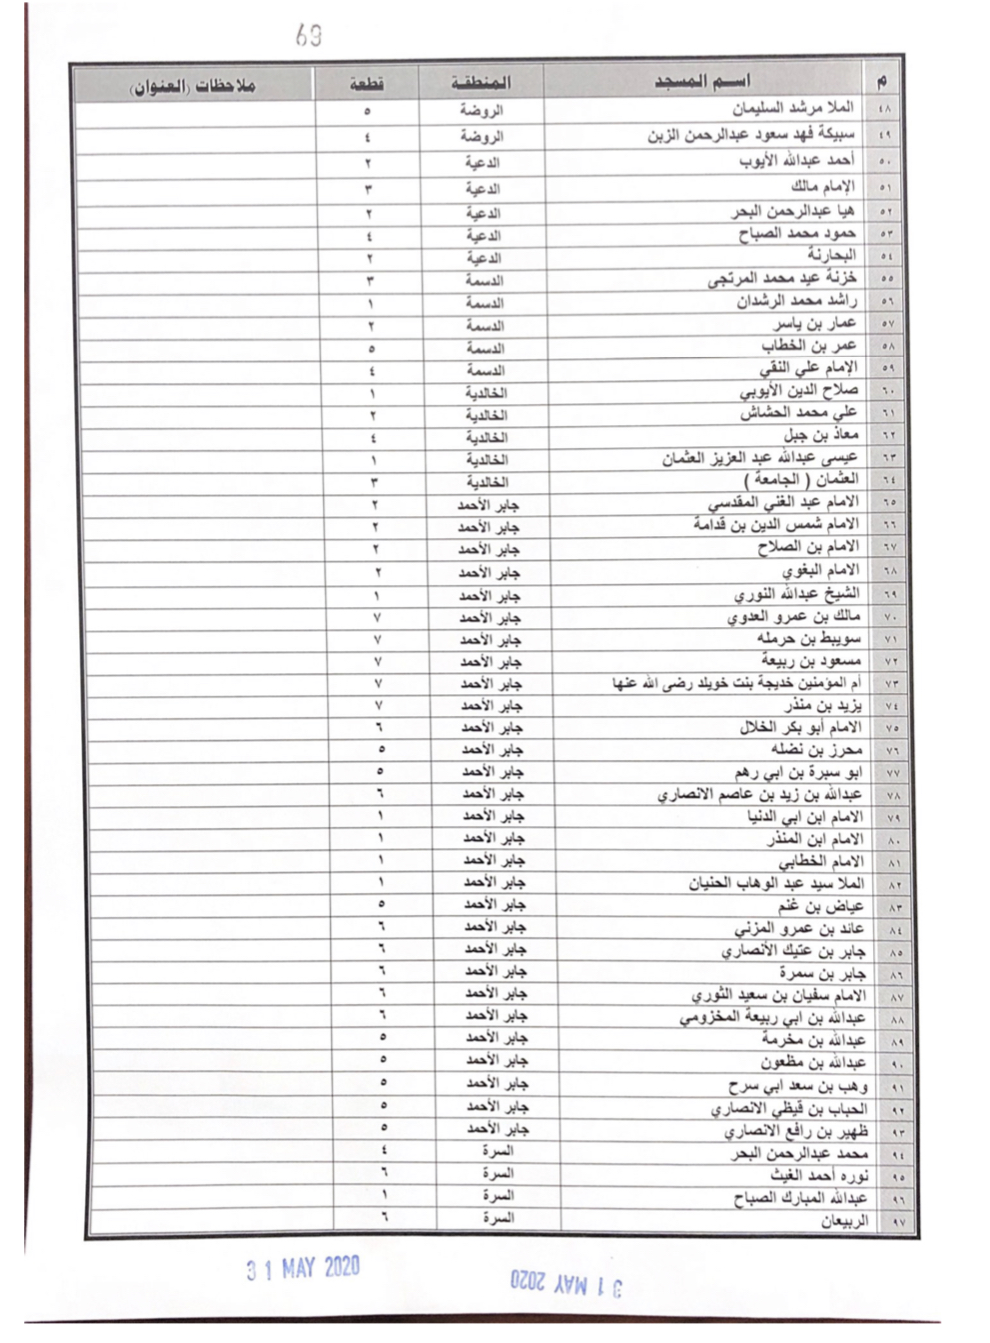 69
م اسم المسجد المنطقة قطعة ملاحظات (العنوان)
٤٨ الملا مرشد السليمان الروضة ٥
٤٩ سبيكة فهد سعود عبدالرحمن الزبن الروضة ٤
٥٠ أحمد عبدالله الأيوب الدعية ٢
٥١ الإمام مالك الدعية ٣
٥٢ هيا عبدالرحمن البحر الدعية ٢
٥٣ حمود محمد الصباح الدعية ٤
٥٤ البحارنة الدعية ٢
٥٥ خزنة عيد محمد المرتجى الدسمة ٣
٥٦ راشد محمد الرشدان الدسمة ١
٥٧ عمار بن ياسر الدسمة ٢
٥٨ عمر بن الخطاب الدسمة ٥
٥٩ الإمام علي النقي الدسمة ٤
٦٠ صلاح الدين الأيوبي الخالدية ١
٦١ علي محمد الحشاش الخالدية ٢
٦٢ معاذ بن جبل الخالدية ٤
٦٣ عيسى عبدالله عبد العزيز العثمان الخالدية ١
٦٤ العثمان ( الجامعة ) الخالدية ٣
٦٥ الامام عبد الغني المقدسي جابر الأحمد ٢
٦٦ الامام شمس الدين بن قدامة جابر الأحمد ٢
٦٧ الامام بن الصلاح جابر الأحمد ٢
٦٨ الامام البغوي جابر الأحمد ٢
٦٩ الشيخ عبدالله النوري جابر الأحمد ١
٧٠ مالك بن عمرو العدوي جابر الأحمد ٧
٧١ سويبط بن حرمله جابر الأحمد ٧
٧٢ مسعود بن ربيعة جابر الأحمد ٧
٧٣ أم المؤمنين خديجة بنت خويلد رضى الله عنها جابر الأحمد ٧
٧٤ يزيد بن منذر جابر الأحمد ٧
٧٥ الامام أبو بكر الخلال جابر الأحمد ٦
٧٦ محرز بن نضله جابر الأحمد ٥
٧٧ ابو سبرة بن ابي رهم جابر الأحمد ٥
٧٨ عبدالله بن زيد بن عاصم الانصاري جابر الأحمد ٦
٧٩ الامام ابن ابي الدنيا جابر الأحمد ١
٨٠ الامام ابن المنذر جابر الأحمد ١
٨١ الامام الخطابي جابر الأحمد ١
٨٢ الملا سيد عبد الوهاب الحنيان جابر الأحمد ١
٨٣ عياض بن غنم جابر الأحمد ٥
٨٤ عائد بن عمرو المزني جابر الأحمد ٦
٨٥ جابر بن عتيك الأنصاري جابر الأحمد ٦
٨٦ جابر بن سمرة جابر الأحمد ٦
٨٧ الامام سفيان بن سعيد الثوري جابر الأحمد ٦
٨٨ عبدالله بن ابي ربيعة المخزومي جابر الأحمد ٦
٨٩ عبدالله بن مخرمة جابر الأحمد ٥
٩٠ عبدالله بن مظعون جابر الأحمد ٥
٩١ وهب بن سعد ابي سرح جابر الأحمد ٥
٩٢ الحباب بن قيظي الانصاري جابر الأحمد ٥
٩٣ ظهير بن رافع الانصاري جابر الأحمد ٥
٩٤ محمد عبدالرحمن البحر السرة ٤
٩٥ نوره أحمد الغيث السرة ٦
٩٦ عبدالله المبارك الصباح السرة ١
٩٧ الربيعان السرة ٦
31 MAY 2020
31 MAY 2020